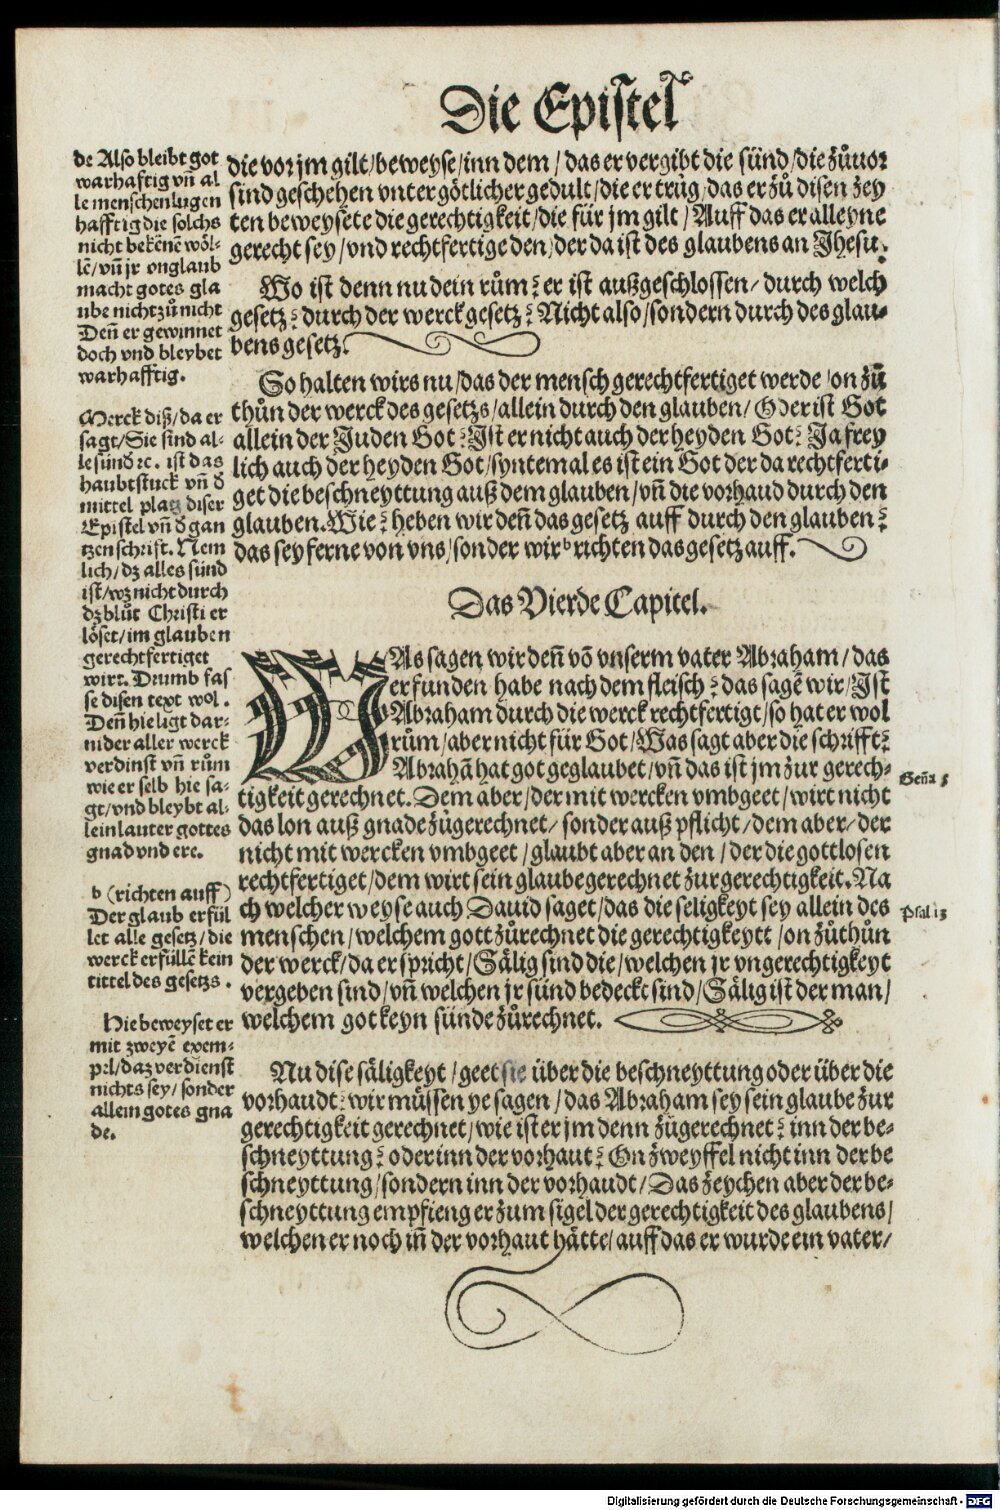 Die Epistel
de Also bleibt got
warhafftig vñ al
le menschen lugen
hafftig die solchs
nicht bekēnē wöl-
lē/vñ jr vnglaub
macht gotes gla
ube nicht zů nicht
Deñ er gewinnet
doch vnd bleybet
warhafftig.
Merck diß/da er
sagt/Sie sind al-
le sünd ꝛc. ist das
haubtstuck vñ d
mittel platz diser
Epistel vñ d gan
tzen schrift. Nem
lich/dz alles sünd
ist/wz nicht durch
dz blůt Christi er
löset/im glauben
gerechtfertiget
wirt. Drumb fas
se disen text wol.
Deñ hie ligt dar-
nider aller werck
verdinst vñ rům
wie er selb hie sa-
gt/vnd bleybt al-
lein lauter gottes
gnad vnd ere.
b (richten auff)
Der glaub erfül
let alle gesetz/die
werck erfüllē kein
tittel des gesetzs.
Hie beweyset er
mit zweyē exem-
pel/daz verdienst
nichts sey/sonder
allein gotes gna
de.
die vor jm gilt/beweyse/inn dem/das er vergibt die sünd/die zůuor
sind geschehen vnter götlicher gedult/die er trůg/das er zů disen zey
ten beweysete die gerechtigkeit/die für jm gilt/Auff das er alleyne
gerecht sey/vnd rechtfertige den/der da ist des glaubens an Jhesu.
Wo ist denn nu dein rům? er ist außgeschlossen/durch welch
gesetz? durch der werck gesetz? Nicht also/sondern durch des glau-
bens gesetz.
So halten wirs nu/das der mensch gerechtfertiget werde/on zů
thůn der werck des gesetzs/allein durch den glauben/Oder ist Got
allein der Juden Got? Ist er nicht auch der heyden Got? Ja frey
lich auch der heyden Got/syntemal es ist ein Got der da rechtferti-
get die beschneyttung auß dem glauben/vñ die vorhaud durch den
glauben. Wie? heben wir deñ das gesetz auff durch den glauben?
das sey ferne von vns/sonder wir b richten das gesetz auff.
Das Vierde Capitel.
WAs sagen wir deñ võ vnserm vater Abraham/das
er funden habe nach dem fleisch? das sagē wir/Ist
Abraham durch die werck rechtfertigt/so hat er wol
rům/aber nicht für Got/Was sagt aber die schrifft?
Abrahã hat got geglaubet/vñ das ist jm zur gerech-
tigkeit gerechnet. Dem aber/der mit wercken vmbgeet/wirt nicht
das lon auß gnade zůgerechnet/sonder auß pflicht/dem aber/der
nicht mit wercken vmbgeet/glaubt aber an den/der die gottlosen
rechtfertiget/dem wirt sein glaube gerechnet zur gerechtigkeit. Na
ch welcher weyse auch Dauid saget/das die seligkeyt sey allein des
menschen/welchem gott zůrechnet die gerechtigkeytt/on zůthůn
der werck/da er spricht/Sälig sind die/welchen jr vngerechtigkeyt
vergeben sind/vñ welchen jr sünd bedeckt sind/Sälig ist der man/
welchem got keyn sünde zůrechnet.
Nu dise säligkeyt/geet sie über die beschneyttung oder über die
vorhaudt? wir müssen ye sagen/das Abraham sey sein glaube zur
gerechtigkeit gerechnet/wie ist er jm denn zůgerechnet? inn der be-
schneyttung? oder inn der vorhaut? On zweyffel nicht inn der be
schneyttung/sondern inn der vorhaudt/Das zeychen aber der be-
schneyttung empfieng er zum sigel der gerechtigkeit des glaubens/
welchen er noch iñ der vorhaut hätte/auff das er wurde ein vater/
Digitalisierung gefördert durch die Deutsche Forschungsgemeinschaft - DFG